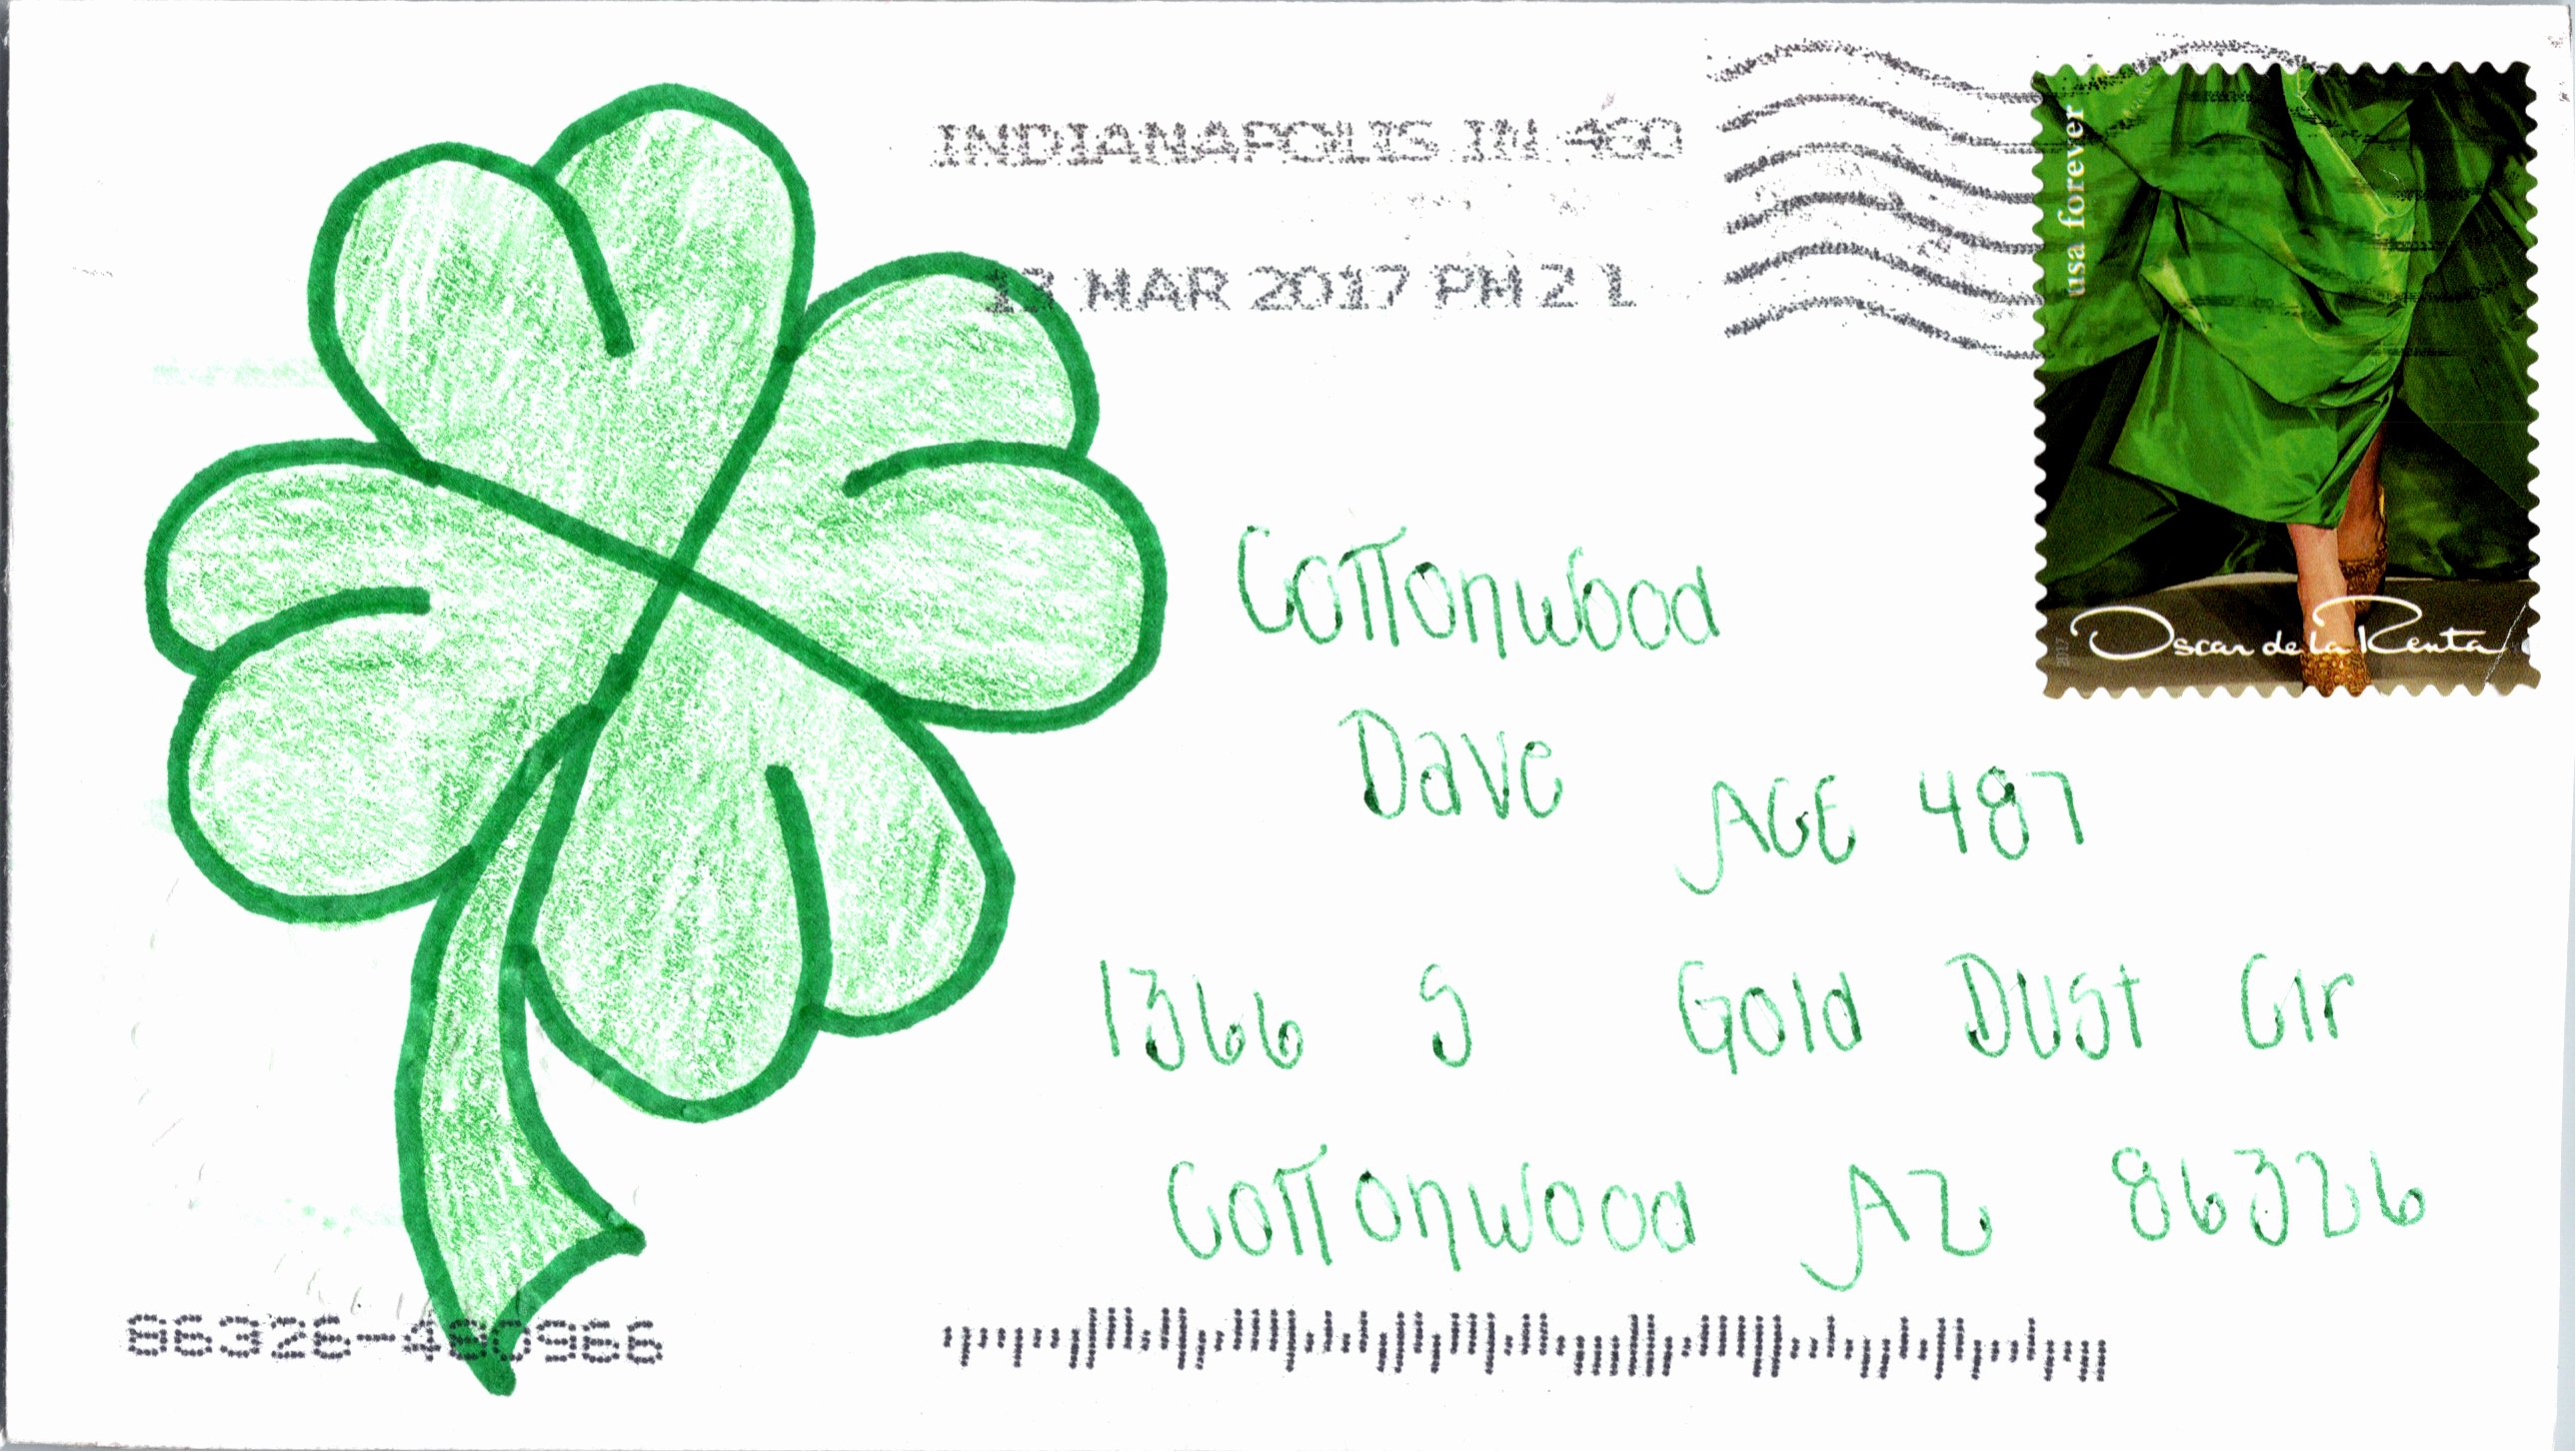 INDIANAPOLIS IN 460
13 MAR 2017 PM 2 L
usa forever
Oscar de la Renta
2017
Cottonwood
Dave
AGE 487
1366 S Gold Dust Cir
Cottonwood AZ 86326
86326-480966